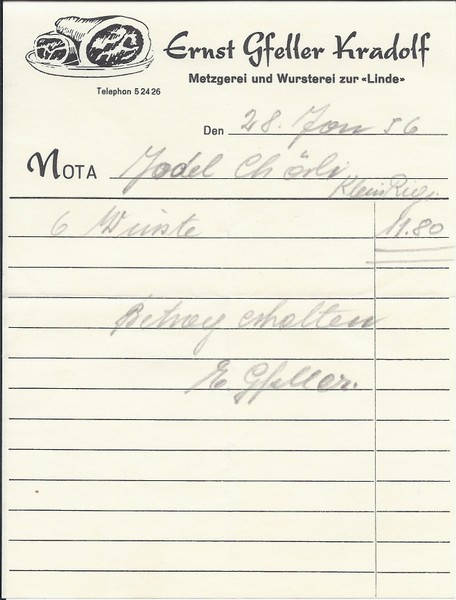 Ernst Gfeller Kradolf
Metzgerei und Wursterei zur «Linde»
Telephon 5 24 26
Den 28. Jan 56
NOTA Jodel Chörli
Klein Rigi
6 Würste 11.80
Betrag erhalten
E. Gfeller.